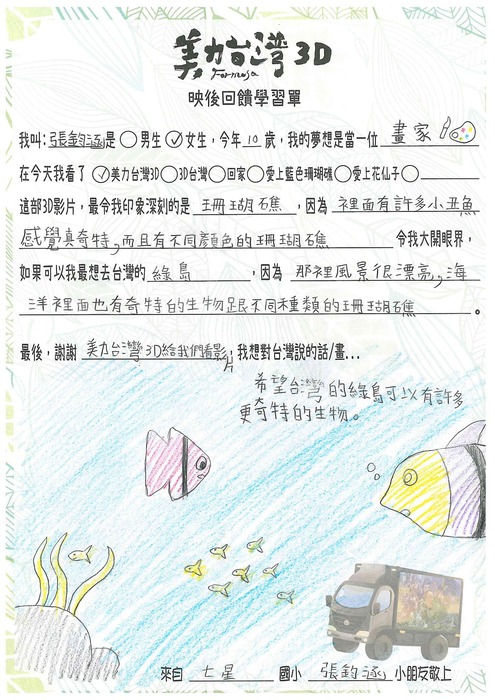 美力台灣3D
Formosa
映後回饋學習單
我叫:張鈞涵是○男生✓女生,今年10歲,我的夢想是當一位畫家
在今天我看了✓美力台灣3D○3D台灣○回家○愛上藍色珊瑚礁○愛上花仙子○
這部3D影片,最令我印象深刻的是珊瑚礁,因為裡面有許多小丑魚
感覺真奇特,而且有不同顏色的珊瑚礁令我大開眼界,
如果可以我最想去台灣的綠島,因為那裡風景很漂亮,海
洋裡面也有奇特的生物跟不同種類的珊瑚礁。
最後,謝謝美力台灣3D給我們看影片,我想對台灣說的話/畫...
希望台灣的綠島可以有許多
更奇特的生物。
來自七星國小張鈞涵小朋友敬上